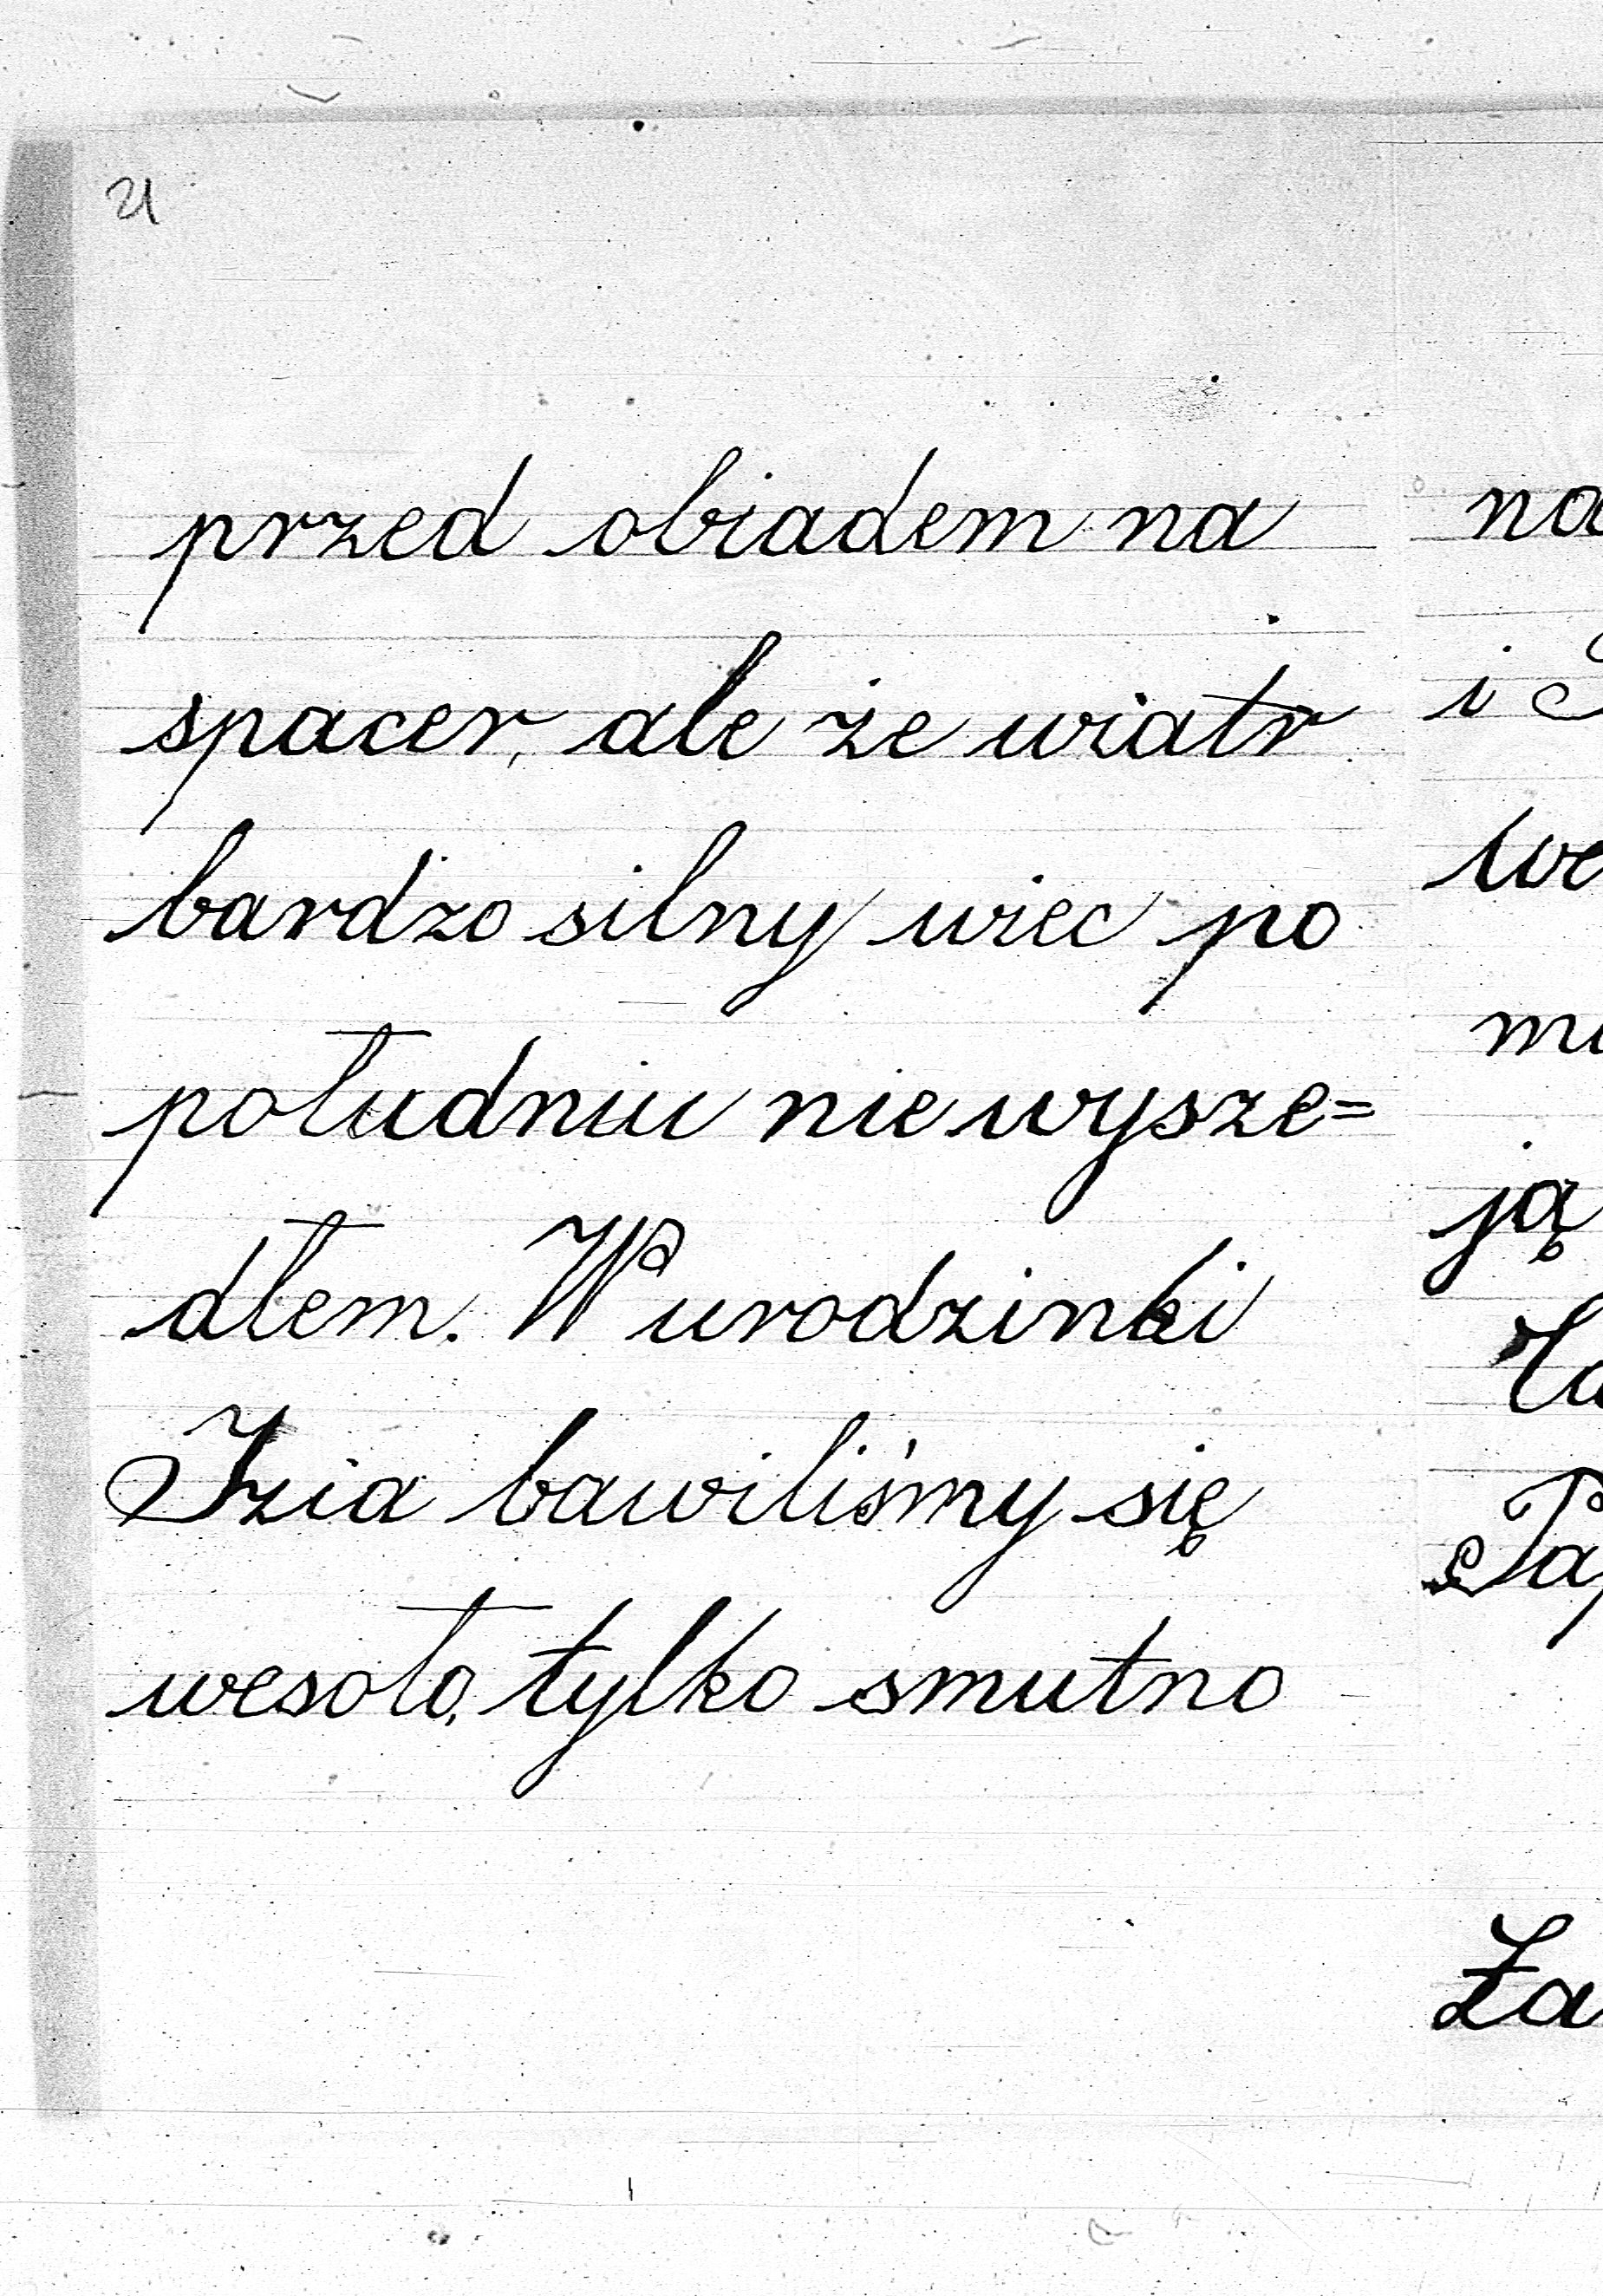 21
przed obiadem na
spacer, ale że wiatr
bardzo silny wiec po
południu nie wysze=
dłem. W urodzinki
Izia bawiliśmy się
wesoło, tylko smutno
na
i
ją
Za